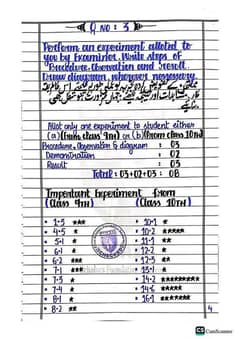 Q NO : 3
Perform an experiment alloted to
you by Examiner. Write steps of
Procedure, Obervation and Result.
Draw diagram, wherever necessary.
Allot only one experiment to student either
(a) (from class 9th) or (b) (from class 10th)
Procedure, Observation & diagram : 03
Demonstration : 02
Result : 03
Total : 03+02+03 : 08
Important Experiment from
(Class 9th) (Class 10th)
1-5 *** 10-1 *
4-5 * 10-2 *****
5-1 * 11-1 **
6-1 * 12-2 **
6-2 *** 12-3 **
7-1 *** 13-1 *
7-3 * 14-2 *******
7-4 * 14-6 *****
8-1 * 16-1 *******
8-2 **
4
CS CamScanner